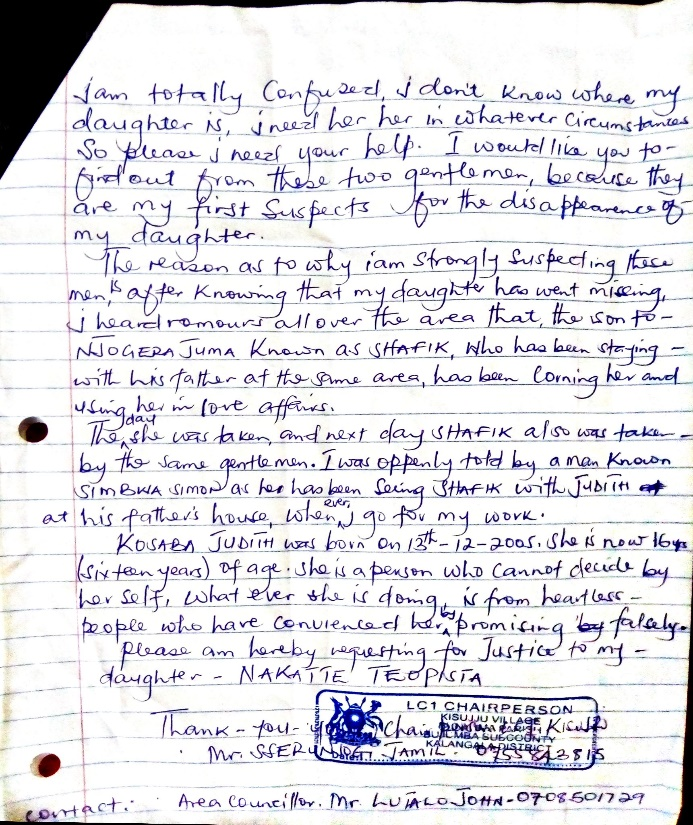 iam totally Confused, i don't know where my
daughter is, i need her her in whatever Circumstances
So please i need your help. I would like you to-
find out from these two gentlemen, because they
are my first Suspects for the disappearence of
my daughter.
The reason as to why iam strongly Suspecting these
men, is after Knowing that my daughter has went missing,
i heard romours all over the area that, the son to-
NJOGERA JUMA Known as SHAFIK, Who has been staying -
with his father at the same area, has been Corning her and
using her in love affairs.
The day she was taken, and next day SHAFIK also was taken -
by the same gentlemen. I was oppenly told by a man Known
SIMBWA SIMON as he has been Seing SHAFIK with JUDITH
at his father's house, when ever i go for my work.
KOSABA JUDITH was born on 13th-12-2005. She is now 16yrs
(sixteen years) of age. She is a person who cannot decide by
her self, what ever she is doing, is from heartless -
people who have convienced her by promising falsely.
please am hereby requesting for Justice to my -
daughter - NAKATTE TEOPISTA
Thank - you - Chair Kisujju
LC1 CHAIRPERSON
KISUJJU VILLAGE
PARISH
SUBCOUNTY
KALANGALA DISTRICT
Mr. JAMIL.
contact: Area Councillor. Mr. LUTALO JOHN - 0708501729